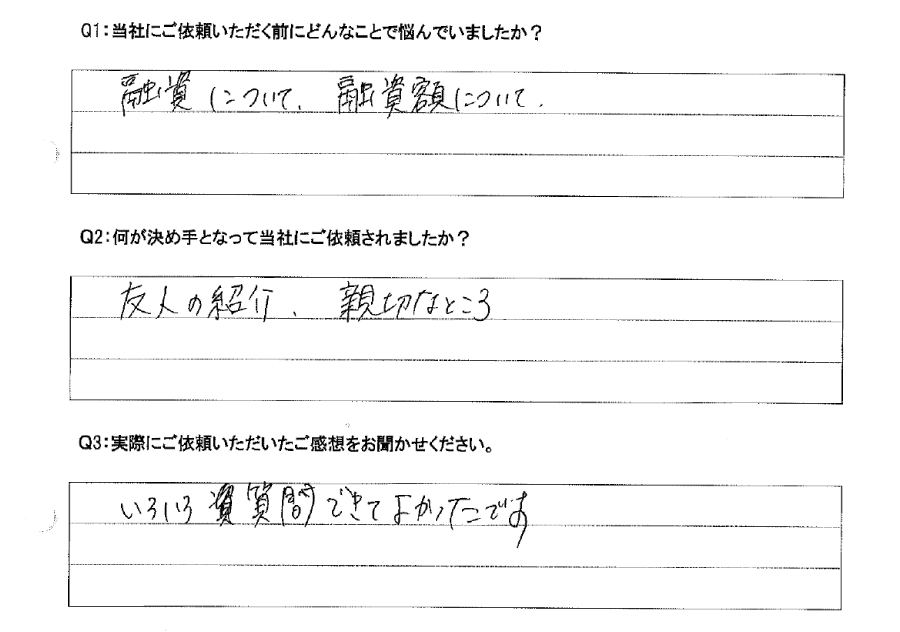 Q1：当社にご依頼いただく前にどんなことで悩んでいましたか？
融資について、 融資額について．
Q2：何が決め手となって当社にご依頼されましたか？
友人の紹介、 親切なところ
Q3：実際にご依頼いただいたご感想をお聞かせください。
いろいろ 質問できてよかったです